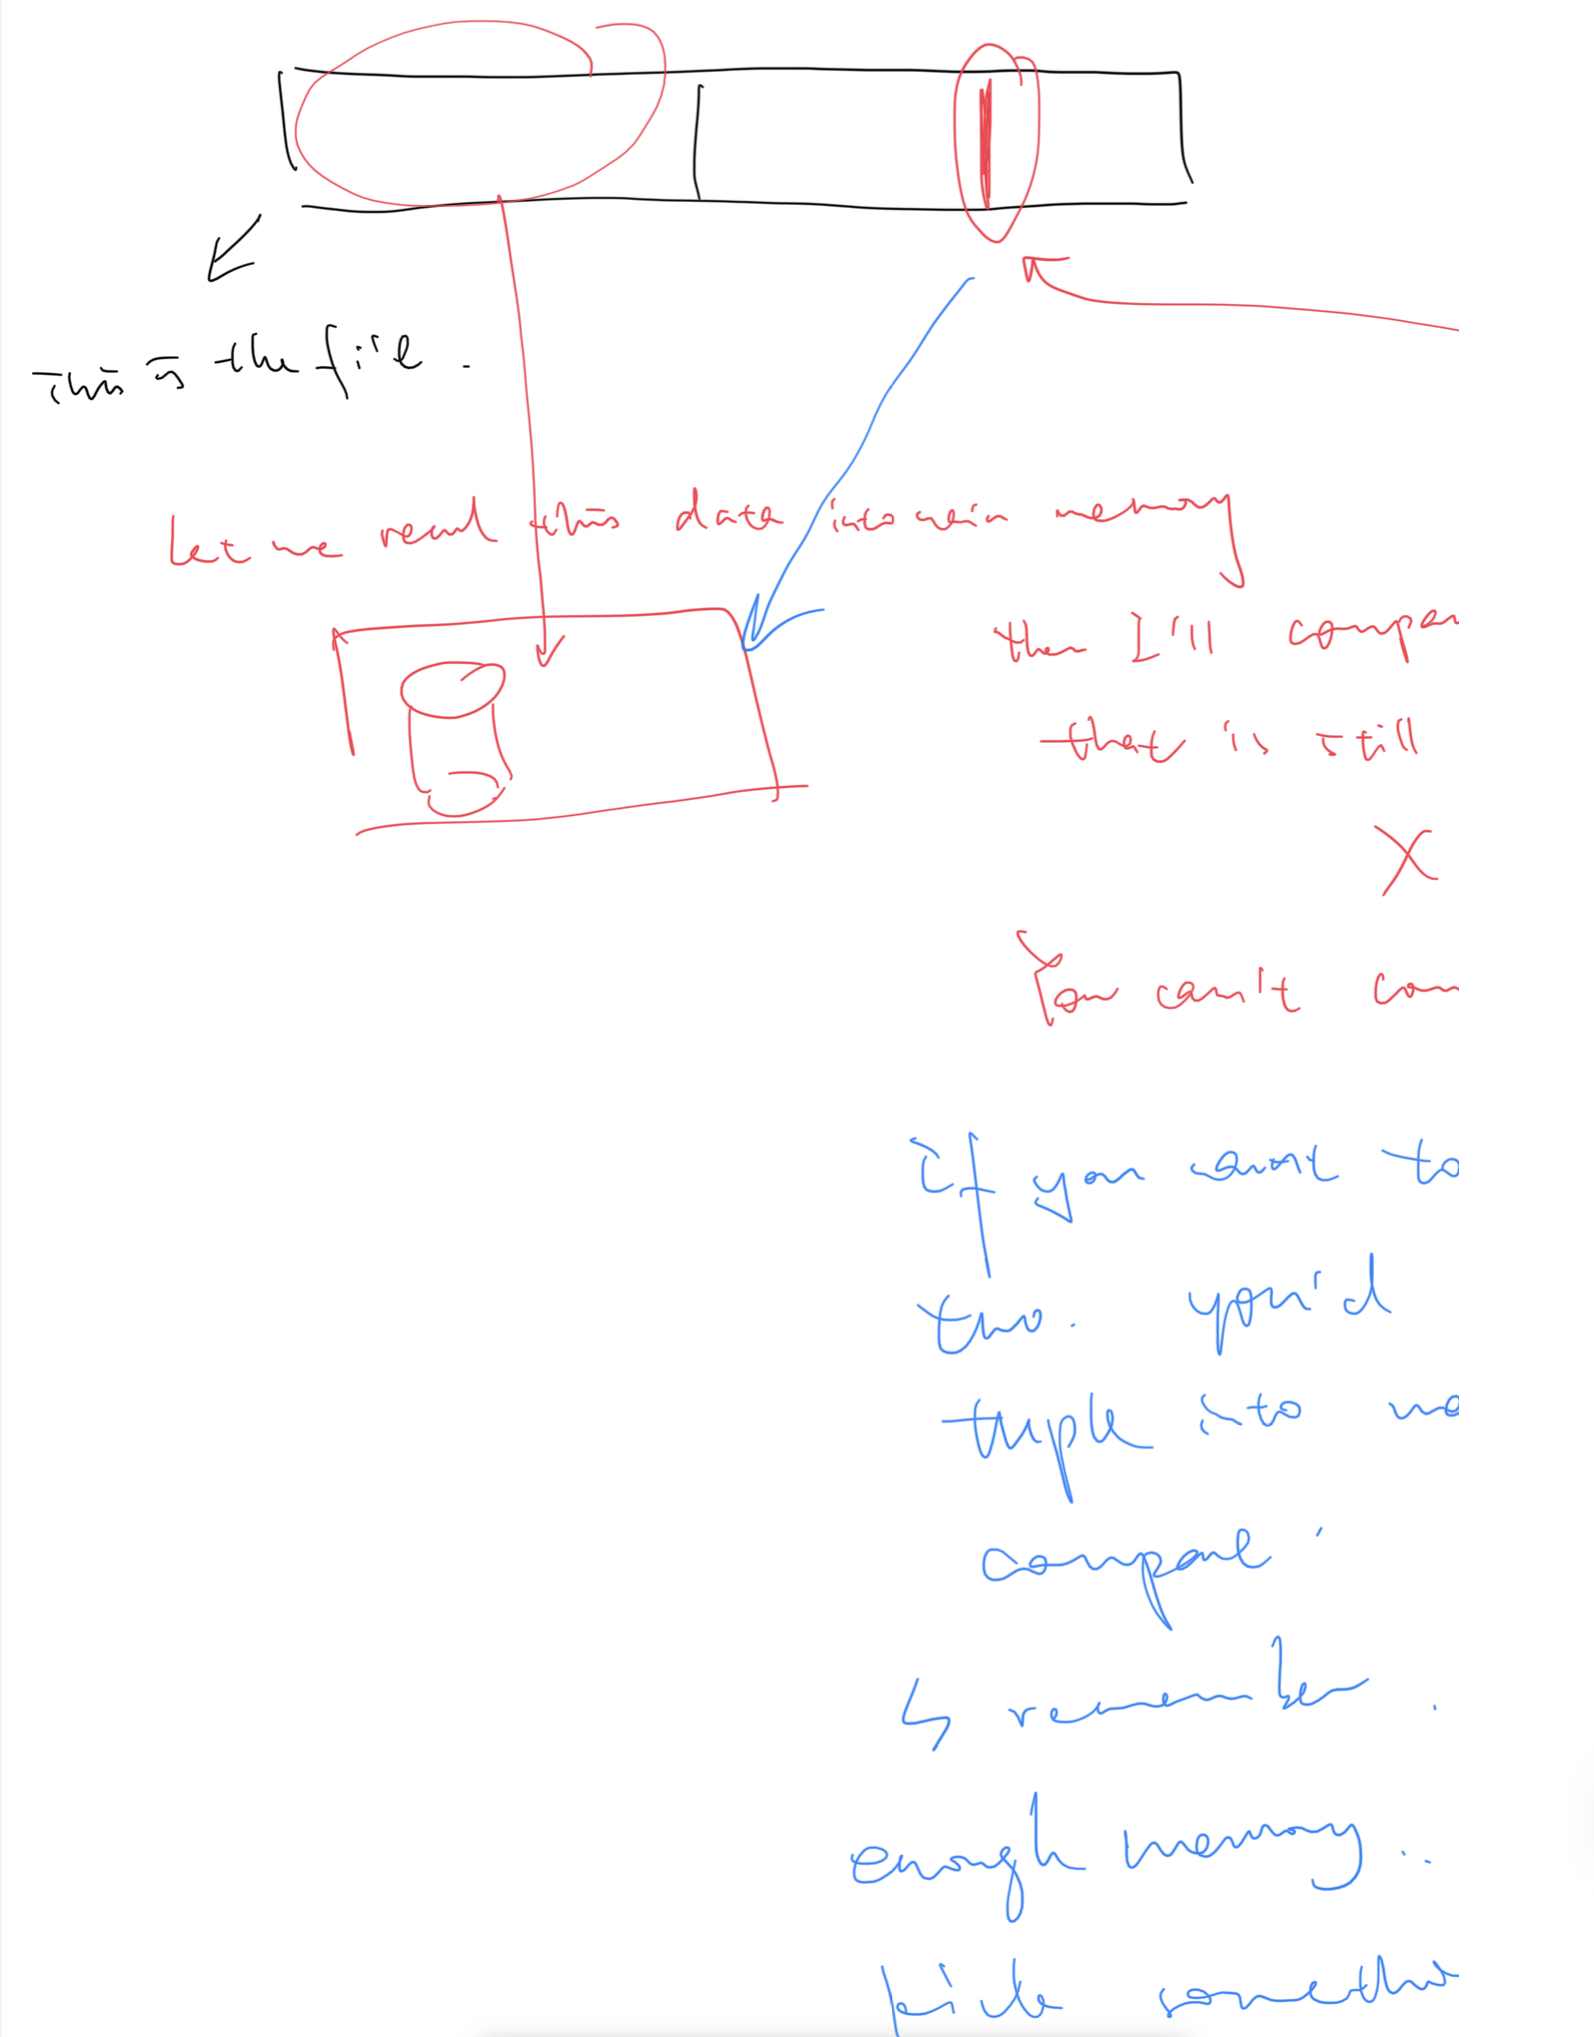 this is the file.
Let me read this data into main memory
then I'll compar
that is still
X
You can't com
if you want to
two. you'd
tuple into me
compare
↳ remember.
enough memory..
kick somethin